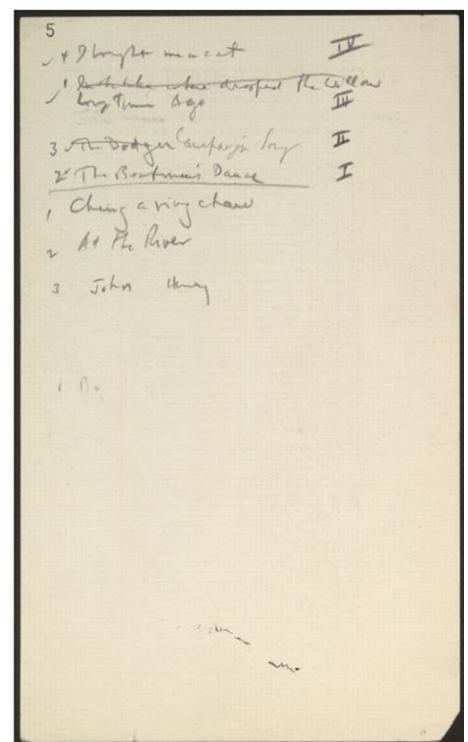 5
✓ 4 I bought me a cat IV
✓ 1 By the lake where drooped the Willow
Long Time Ago III
3 ✓ The Dodger Campaign Song II
2 ✓ The Boatmen's Dance I
1 Ching a ring chaw
2 At the River
3 John Henry
1 Bo